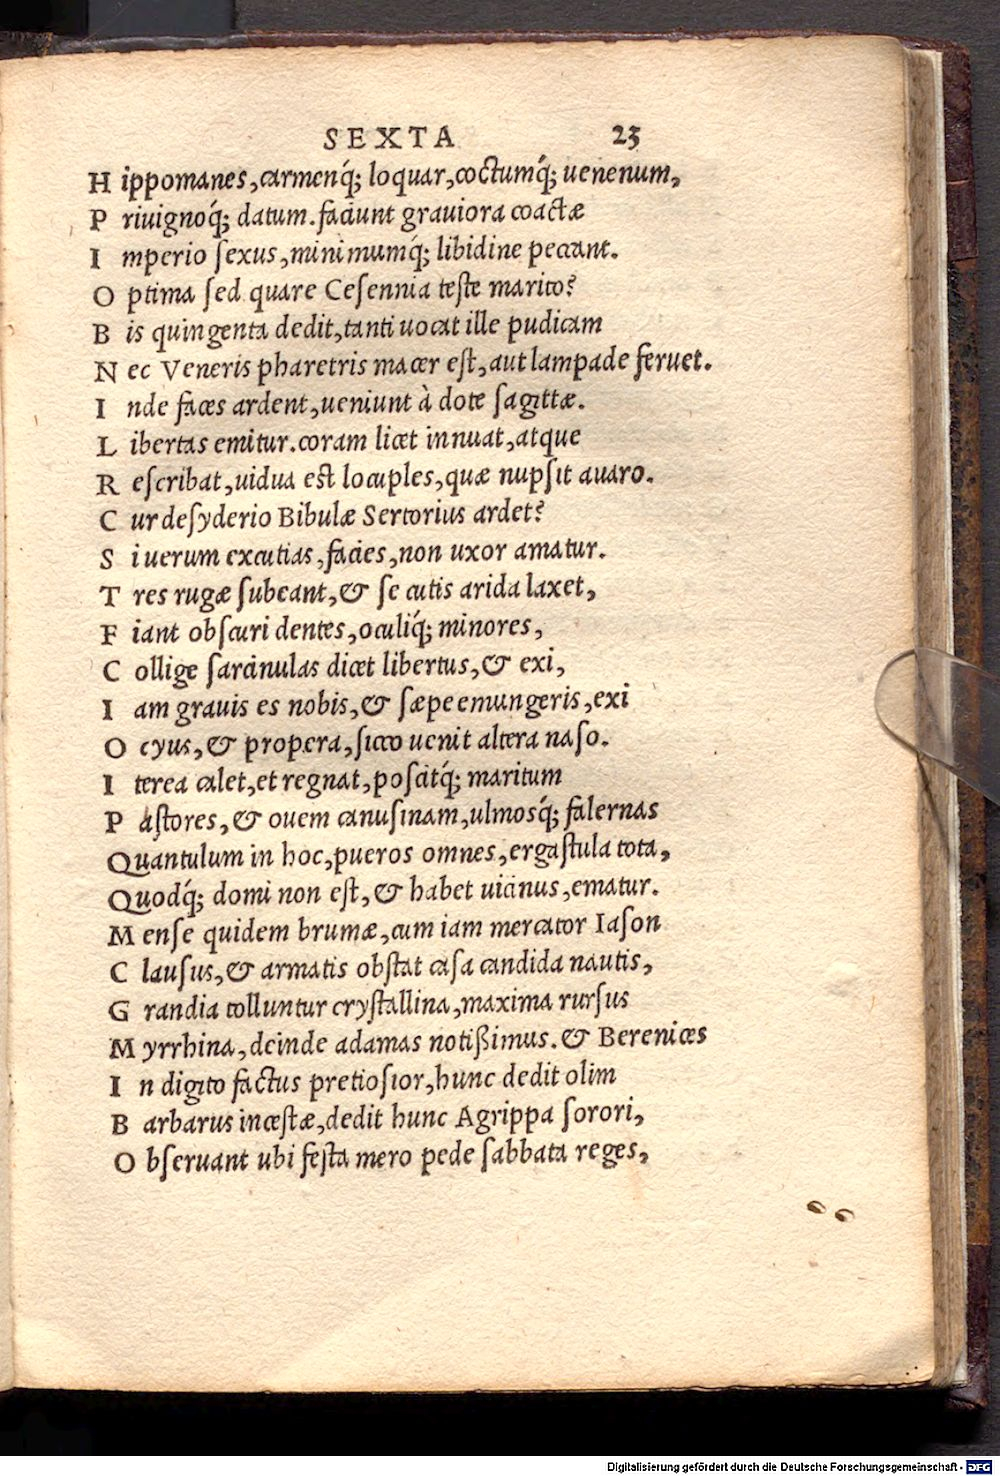 SEXTA 23
Hippomanes, carmenq́; loquar, coctumq́; uenenum,
Priuignoq́; datum. faciunt grauiora coactæ
Imperio sexus, minimumq́; libidine peccant.
Optima sed quare Cesennia teste marito?
Bis quingenta dedit, tanti uocat ille pudicam
Nec Veneris pharetris macer est, aut lampade feruet.
Inde faces ardent, ueniunt à dote sagittæ.
Libertas emitur. coram licet innuat, atque
Rescribat, uidua est locuples, quæ nupsit auaro.
Cur desyderio Bibulæ Sertorius ardet?
Si uerum excutias, facies, non uxor amatur.
Tres rugæ subeant, & se cutis arida laxet,
Fiant obscuri dentes, oculiq́; minores,
Collige sarcinulas dicet libertus, & exi,
Iam grauis es nobis, & sæpe emungeris, exi
Ocyus, & propera, sicco uenit altera naso.
Iterea calet, et regnat, poscitq́; maritum
Pastores, & ouem canusinam, ulmosq́; falernas
Quantulum in hoc, pueros omnes, ergastula tota,
Quodq́; domi non est, & habet uicinus, ematur.
Mense quidem brumæ, cum iam mercator Iason
Clausus, & armatis obstat casa candida nautis,
Grandia tolluntur crystallina, maxima rursus
Myrrhina, deinde adamas notißimus. & Berenices
In digito factus pretiosior, hunc dedit olim
Barbarus incestæ, dedit hunc Agrippa sorori,
Obseruant ubi festa mero pede sabbata reges,
Digitalisierung gefördert durch die Deutsche Forschungsgemeinschaft - DFG